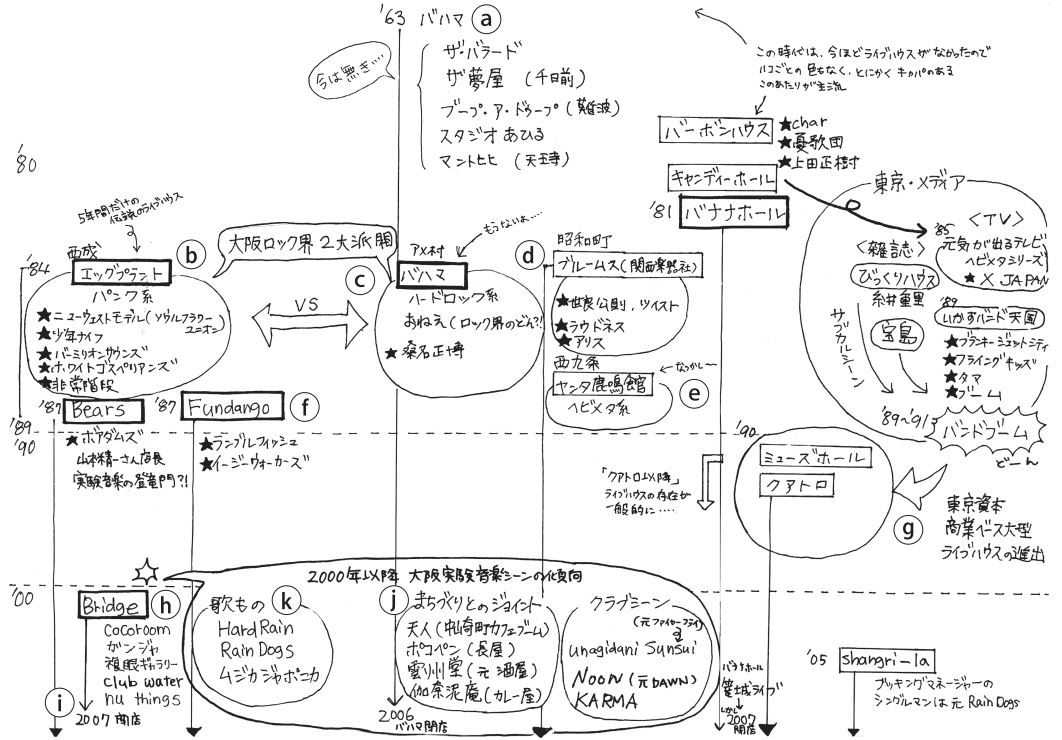 '63 バハマ ⓐ
ザ・バラード
ザ夢屋 (千日前)
ブープ・ア・ドゥープ(難波)
スタジオあひる
マントヒヒ (天王寺)
今は無き‥‥
この時代は、今ほどライブハウスがなかったので
ハコごとの色もなく、とにかくキャパのある
このあたりが主流
バーボンハウス
★char
★憂歌団
★上田正樹
キャンディーホール
'81 バナナホール
'80
5年間だけの
伝説のライブハウス
西成 ⓑ
'84 エッグプラント
パンク系
★ニューウエストモデル(ソウルフラワー
ユニオン
★少年ナイフ
★バーミリオンサウンズ
★ホワイトゴスペリアンズ
★非常階段
大阪ロック界 2大派閥
VS
アメ村
もうないよ‥‥
ⓒ バハマ
ハードロック系
おねえ(ロック界のどん?!
★桑名正博
昭和町
ⓓ ブルームス(関西楽器社)
★世良公則,ツイスト
★ラウドネス
★アリス
西九条
なつかし〜
ヤンタ鹿鳴館
ⓔ
ヘビメタ系
東京・メディア
'85 <TV>
元気が出るテレビ
ヘビメタミリーズ
★X JAPAN
<雑誌>
びっくりハウス
糸井重里
宝島
サブカルシーン
'89
いかすバンド天国
★ブランキージェットシティ
★フライングキッズ
★タマ
★ブーム
'89〜'91
バンドブーム
どーん
'87 Bears
'87 Fundango ⓕ
'89
'90
★ボアダムズ
山本精一さん店長
実験音楽の登竜門?!
★ランブルフィッシュ
★イージーウォーカーズ
'90
ミューズホール
クアトロ
「クアトロ以降」
ライブハウスの存在が
一般的に‥‥
ⓖ 東京資本
商業ベース大型
ライブハウスの進出
2000年以降 大阪実験音楽シーンの化貢向
'00
Bridge ⓗ
cocoroom
ガンジャ
複眼ギャラリー
club water
nu things
ⓘ 2007 閉店
歌もの ⓚ
Hard Rain
Rain Dogs
ムジカジャポニカ
ⓙ まちづくりとのジョイント
天人(中崎町カフェブーム)
ポコペン(長屋)
雲州堂(元 酒屋)
伽奈泥庵(カレー屋)
2006
バハマ閉店
クラブシーン
(元ファイヤーフライ)
unagidani sunsui
NOON (元DAWN)
KARMA
バナナホール
篭城ライブ
しかし
2007
閉店
'05 shangri-la
ブッキングマネージャーの
シングルマンは元 Rain Dogs